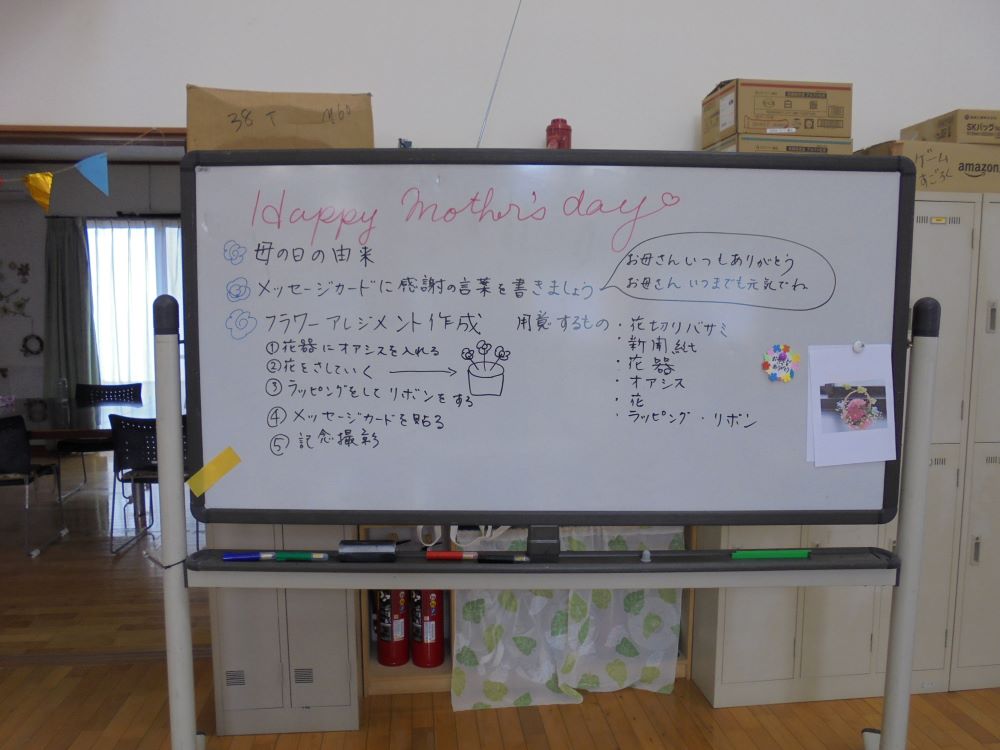 38 T M60
ゲーム
すごろく
SKバッグ
amazon
Happy Mother's day
母の日の由来
メッセージカードに感謝の言葉を書きましょう
お母さんいつもありがとう
お母さん いつまでも元気でね
フラワーアレジメント作成
①花器にオアシスを入れる
②花をさしていく
③ラッピングをしてリボンをする
④メッセージカードを貼る
⑤記念撮影
用意するもの
・花切りバサミ
・新聞紙
・花器
・オアシス
・花
・ラッピング・リボン